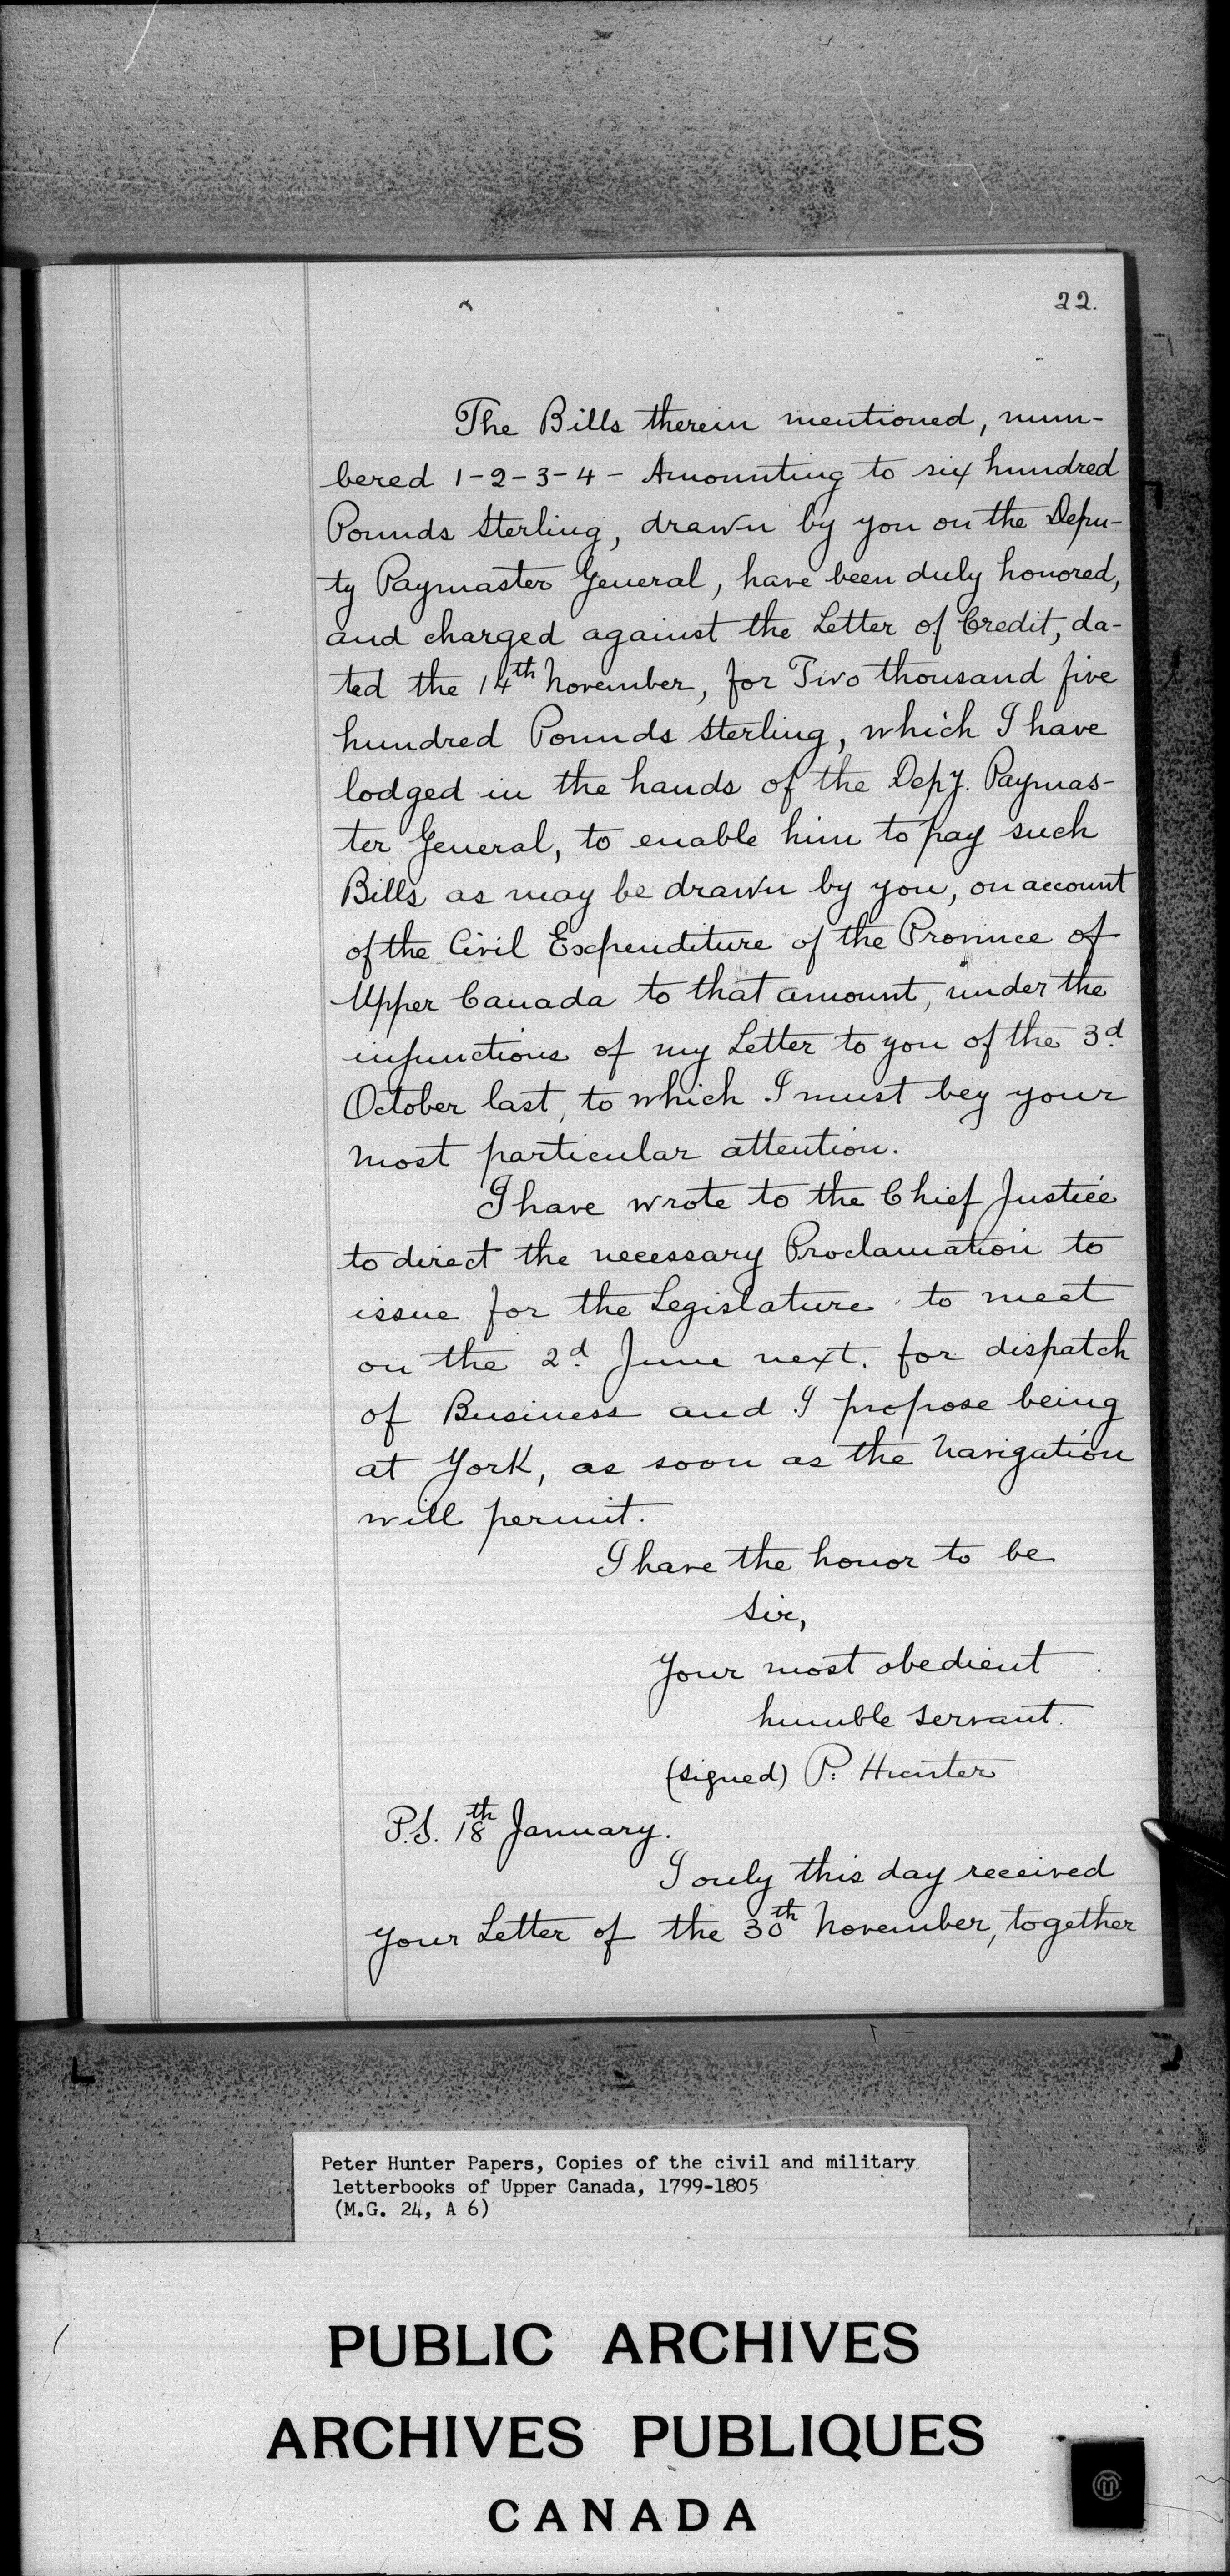 22.
The Bills therein mentioned, num-
bered 1-2-3-4- Amounting to six hundred
Pounds Sterling, drawn by you on the Depu-
ty Paymaster General, have been duly honored,
and charged against the Letter of Credit, da-
ted the 14th November, for Two thousand five
hundred Pounds Sterling, which I have
lodged in the hands of the Depy. Paymas-
ter General, to enable him to pay such
Bills as may be drawn by you, on account
of the Civil Expenditure of the Province of
Upper Canada to that amount, under the
injunctions of my Letter to you of the 3d
October last, to which I must beg your
most particular attention.
I have wrote to the Chief Justice
to direct the necessary Proclamation to
issue for the Legislature to meet
on the 2d June next. for dispatch
of Business and I propose being
at York, as soon as the Navigation
will permit.
I have the honor to be
Sir,
Your most obedient
humble servant.
(signed) P. Hunter
P.S. 18th January.
I only this day received
your Letter of the 30th November, together
Peter Hunter Papers, Copies of the civil and military
letterbooks of Upper Canada, 1799-1805
(M.G. 24, A 6)
PUBLIC ARCHIVES
ARCHIVES PUBLIQUES
CANADA